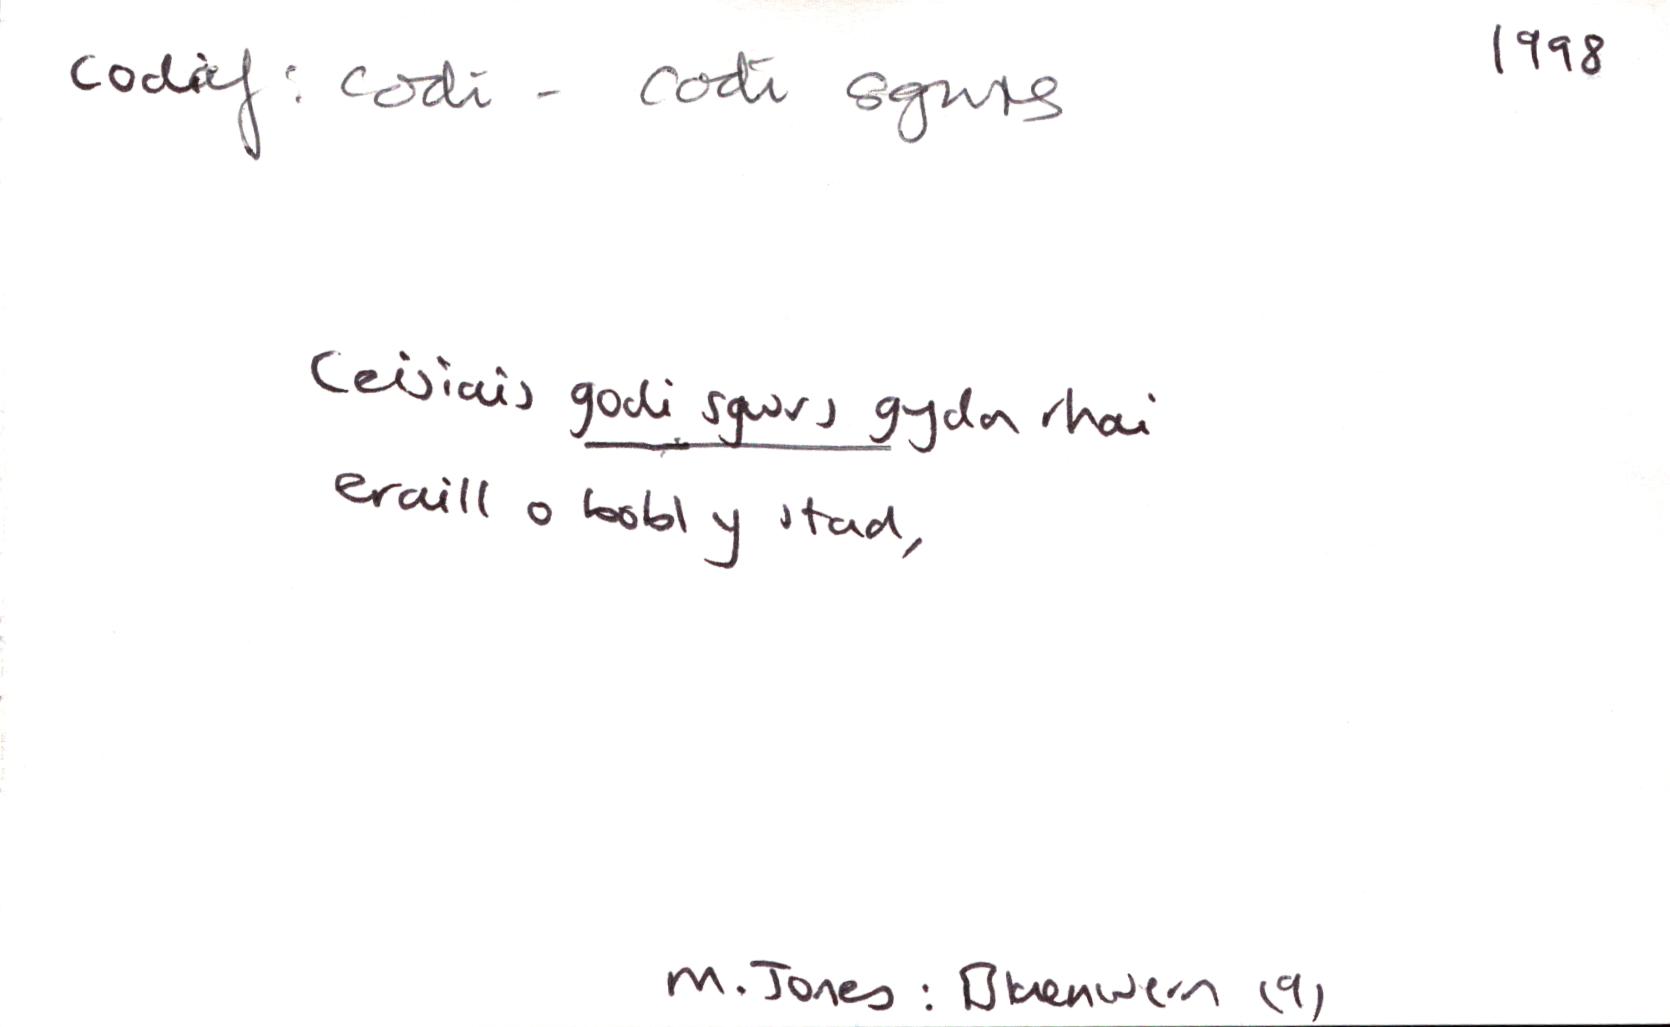 codiaf: codi - codi sgwrs
1998
Ceisiais godi sgwrs gyda rhai
eraill o bobl y stad,
M. Jones: Blaenwern (9)